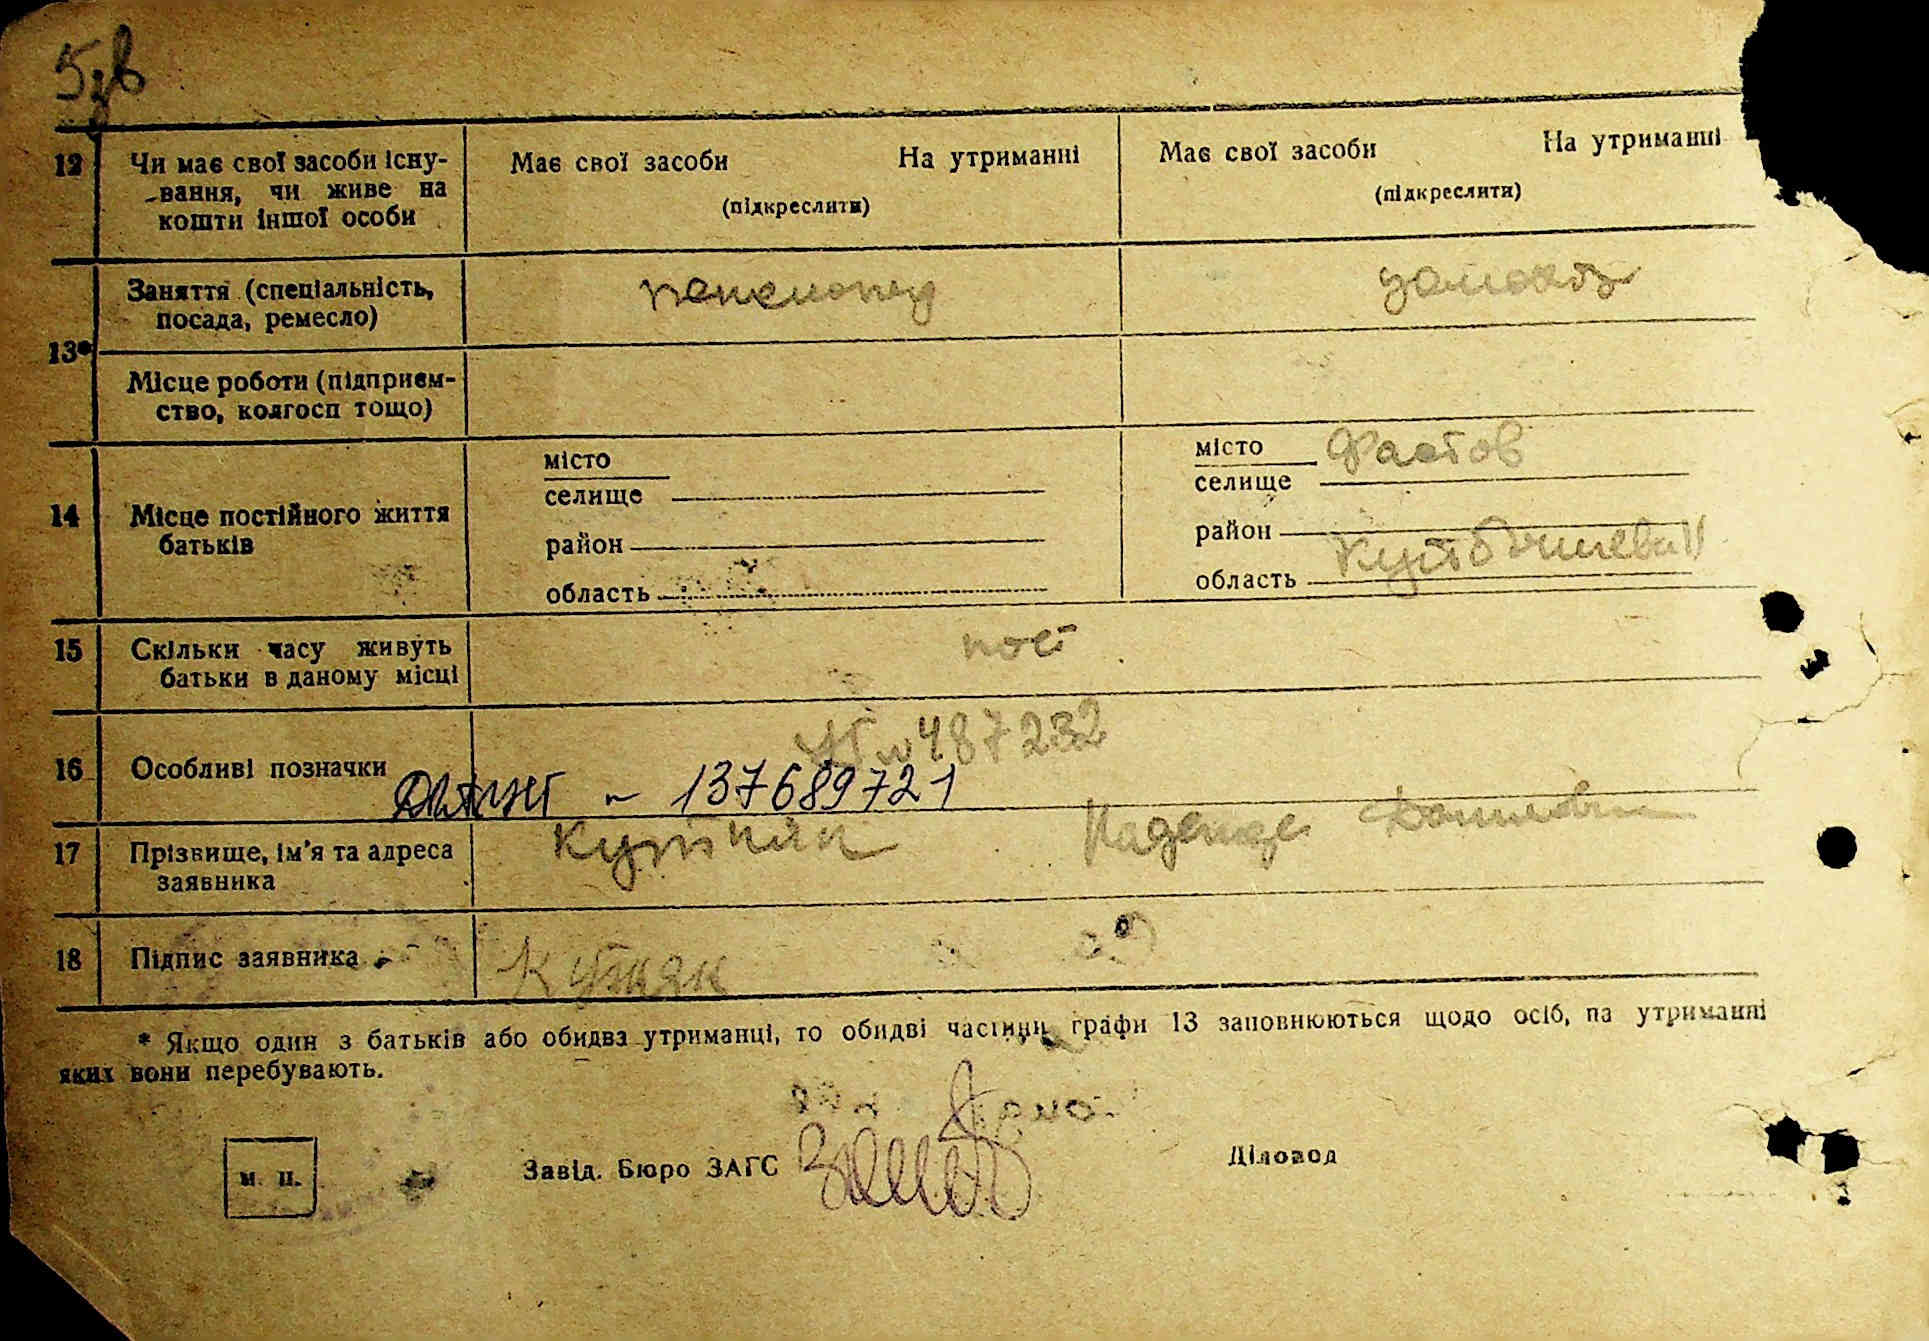 5зв
12 Чи має свої засоби існу-
вання, чи живе на
кошти іншої особи
Має свої засоби На утриманні
(підкреслити)
Має свої засоби На утриманні
(підкреслити)
13* Заняття (спеціальність,
посада, ремесло)
Місце роботи (підприєм-
ство, колгосп тощо)
14 Місце постійного життя
батьків
місто
селище
район
область
місто Фастов
селище
район
область
15 Скільки часу живуть
батьки в даному місці
пост
16 Особливі позначки
№ 487232
137689721
17 Прізвище, ім'я та адреса
заявника
Надежда
18 Підпис заявника
* Якщо один з батьків або обидва утриманці, то обидві частини графи 13 заповнюються щодо осіб, на утриманні
яких вони перебувають.
м. п.
Завід. Бюро ЗАГС
Діловод